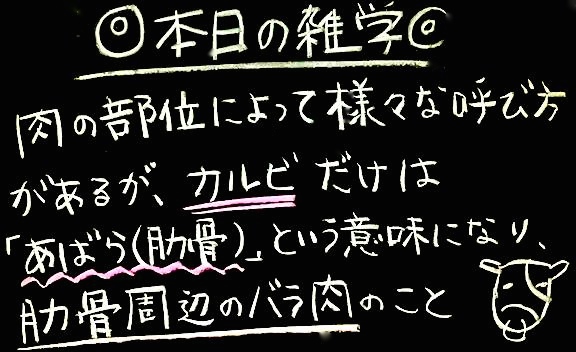 ◎本日の雑学◎
肉の部位によって様々な呼び方
があるが、カルビだけは
「あばら(肋骨)」という意味になり、
肋骨周辺のバラ肉のこと